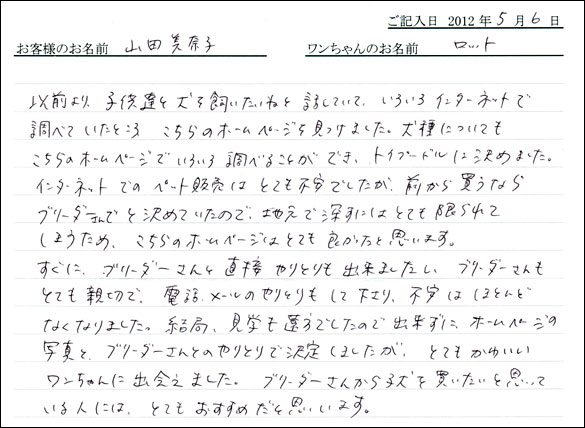 ご記入日 2012 年 5 月 6 日
お客様のお名前 山田 美奈子 ワンちゃんのお名前 ロット
以前より、子供達と犬を飼いたいねと話していて、いろいろインターネットで
調べていたところ こちらのホームページを見つけました。犬種についても
こちらのホームページでいろいろ調べることができ、トイプードルに決めました。
インターネットでのペット販売はとても不安でしたが、前から買うなら
ブリーダーさんでと決めていたので、地元で探すにはとても限られて
しまうため、こちらのホームページはとても良かったと思います。
すぐに、ブリーダーさんと直接やりとりも出来ましたし、ブリーダーさんも
とても親切で、電話、メールのやりとりもして下さり、不安はほとんど
なくなりました。結局、見学も遠うでしたので出来ずに、ホームページの
写真と、ブリーダーさんとのやりとりで決定しましたが、とてもかわいい
ワンちゃんに出会えました。ブリーダーさんから子犬を買いたいと思って
いる人には、とてもおすすめだと思います。